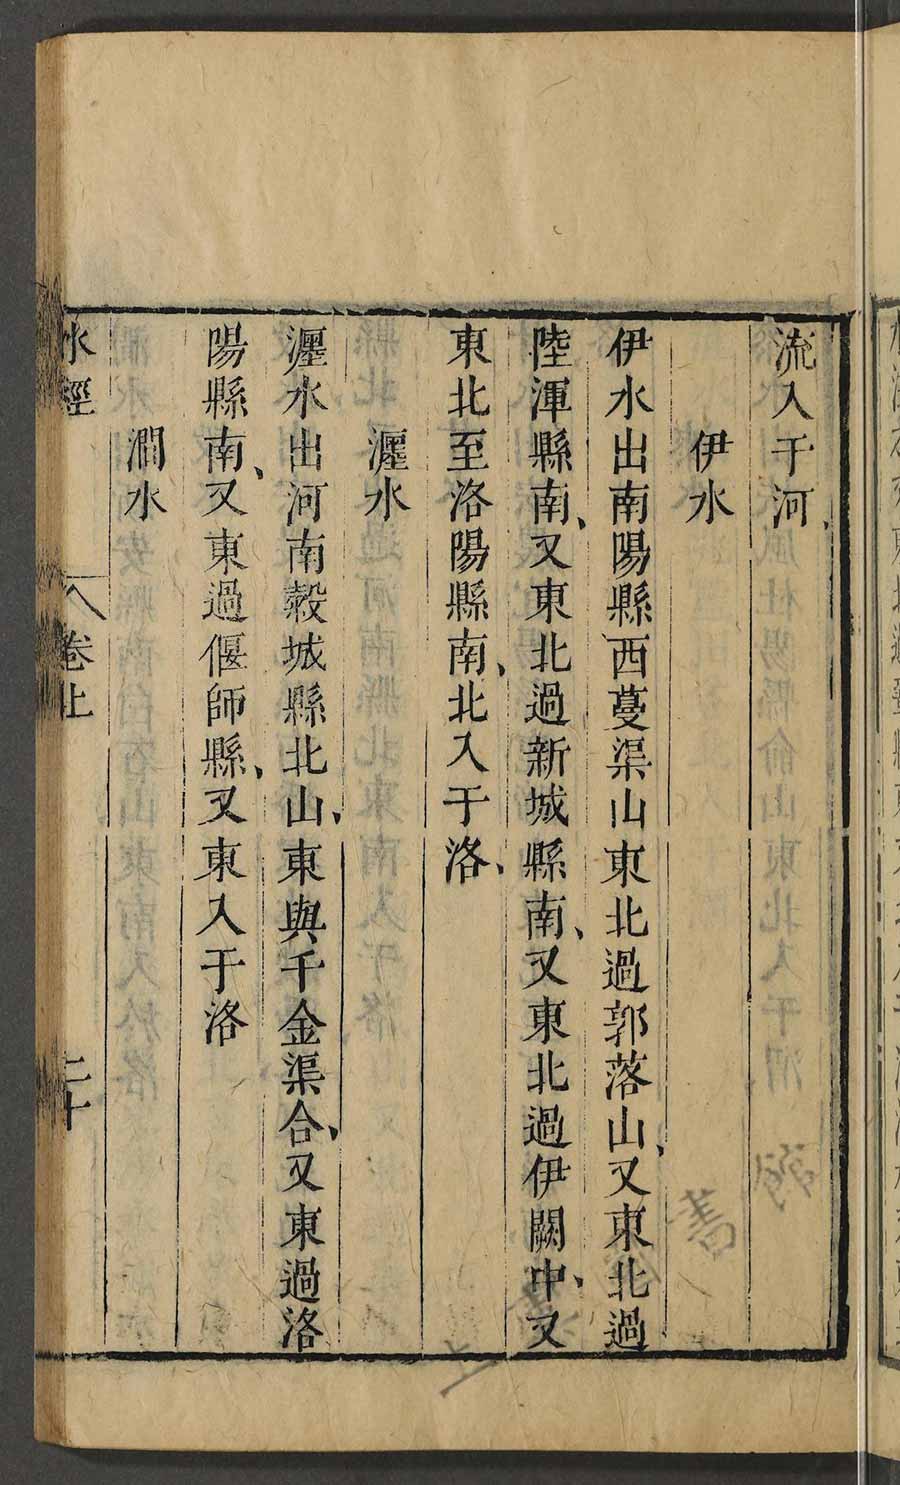 流入于河、
伊水
伊水出南陽縣西蔓渠山東北過郭落山、又東北過
陸渾縣南、又東北過新城縣南、又東北過伊闕中、又
東北至洛陽縣南、北入于洛、
瀍水
瀍水出河南穀城縣北山、東與千金渠合、又東過洛
陽縣南、又東過偃師縣、又東入于洛
澗水
水經
卷上
二十